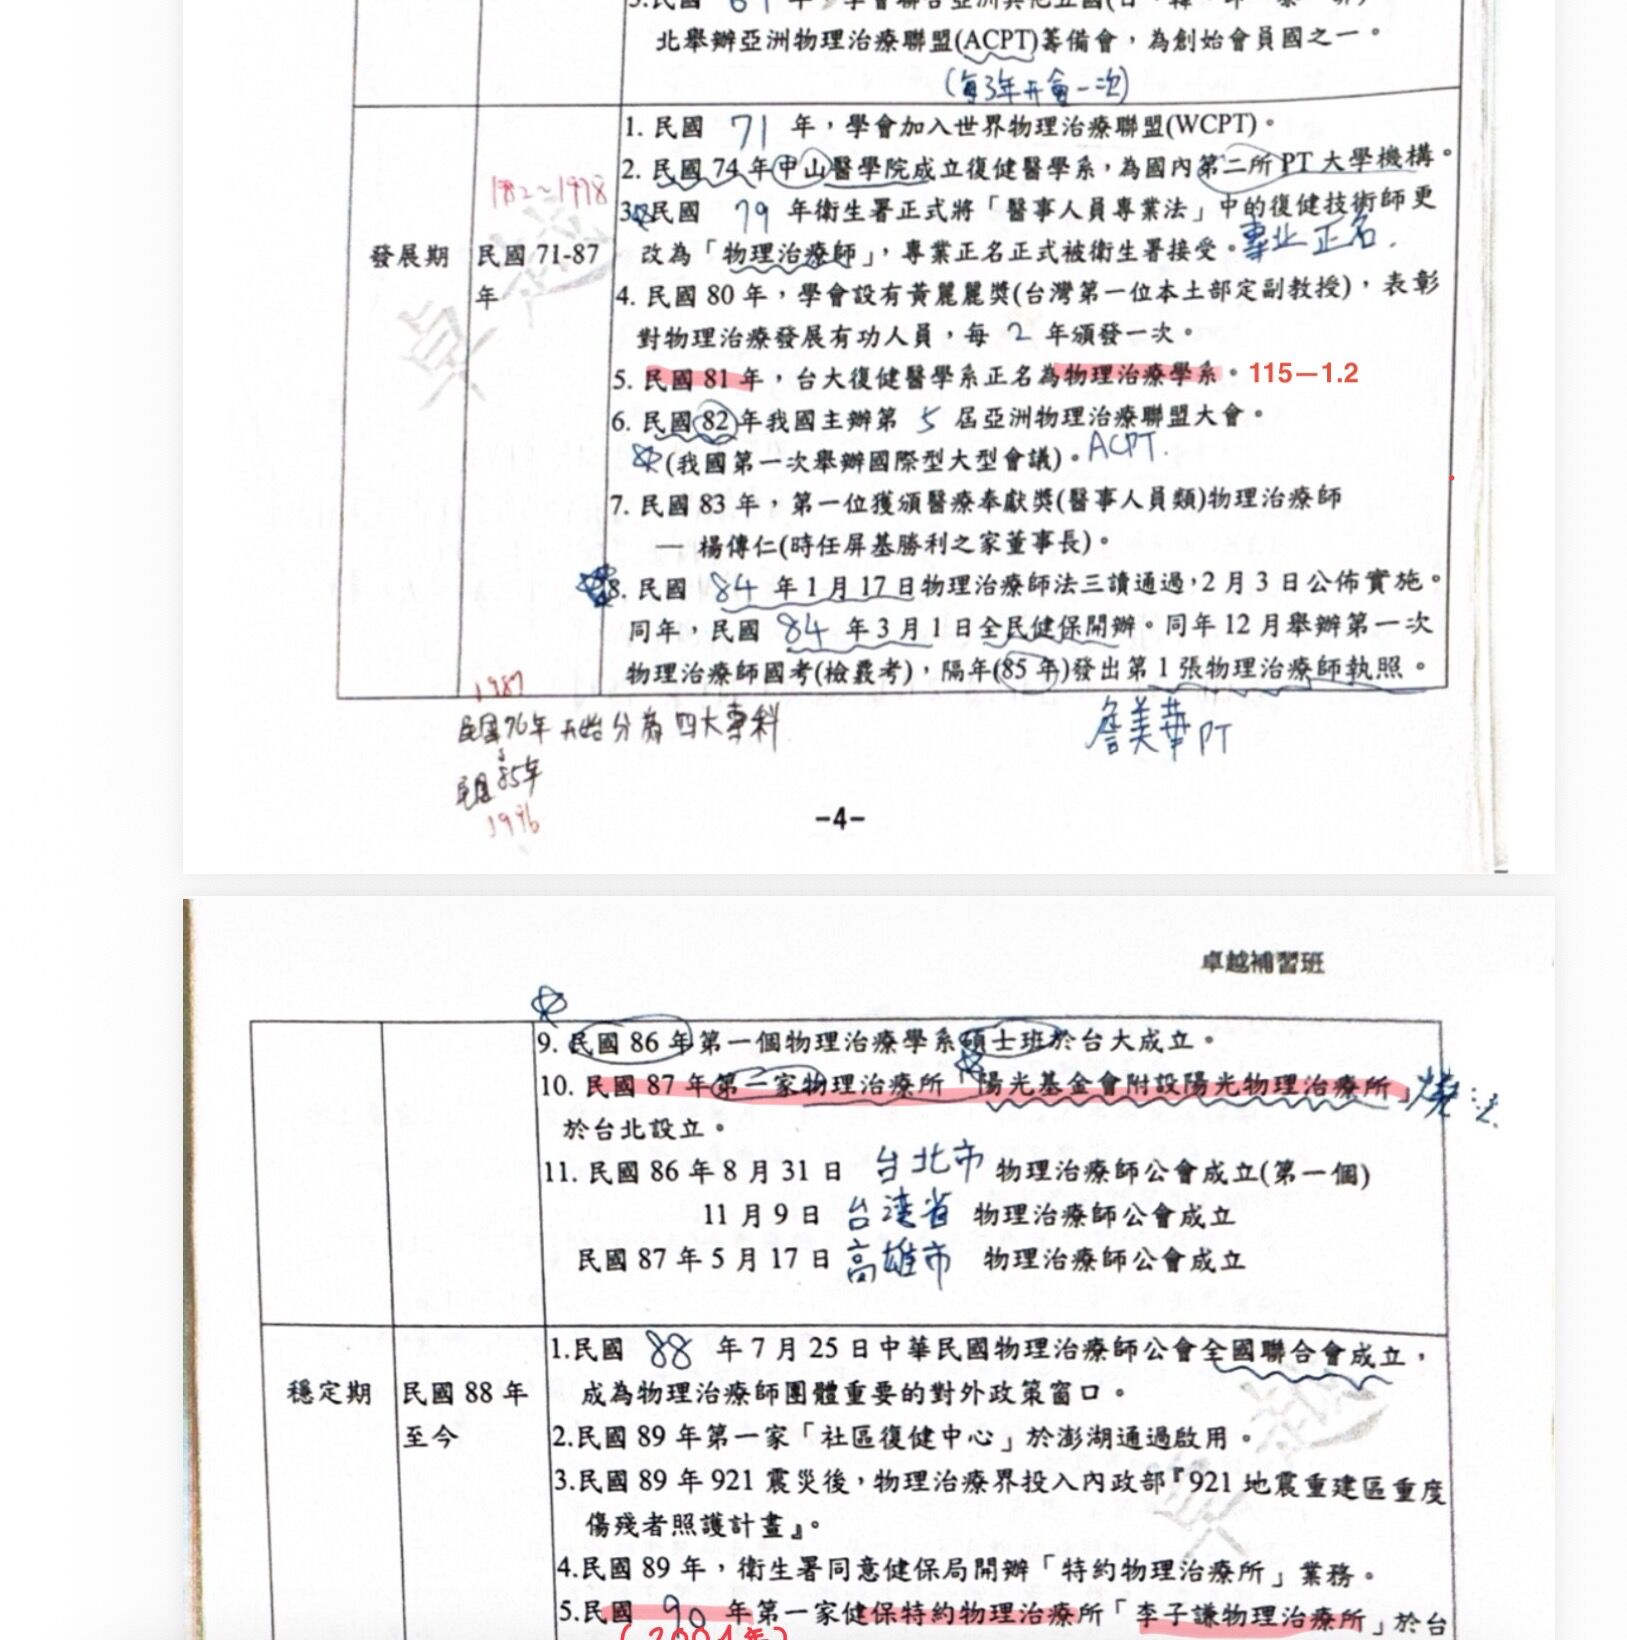 北舉辦亞洲物理治療聯盟(ACPT)籌備會，為創始會員國之一。
(每3年開會一次)
1. 民國 71 年，學會加入世界物理治療聯盟(WCPT)。
2. 民國 74 年中山醫學院成立復健醫學系，為國內第二所 PT 大學機構。
1982~1998
3. 民國 79 年衛生署正式將「醫事人員專業法」中的復健技術師更
改為「物理治療師」，專業正名正式被衛生署接受。專业正名.
發展期
民國 71-87
年
4. 民國 80 年，學會設有黃麗麗獎(台灣第一位本土部定副教授)，表彰
對物理治療發展有功人員，每 2 年頒發一次。
5. 民國 81 年，台大復健醫學系正名為物理治療學系。115—1.2
6. 民國 82 年我國主辦第 5 屆亞洲物理治療聯盟大會。
(我國第一次舉辦國際型大型會議)。ACPT.
7. 民國 83 年，第一位獲頒醫療奉獻獎(醫事人員類)物理治療師
— 楊傳仁(時任屏基勝利之家董事長)。
8. 民國 84 年 1 月 17 日物理治療師法三讀通過，2 月 3 日公佈實施。
同年，民國 84 年 3 月 1 日全民健保開辦。同年 12 月舉辦第一次
物理治療師國考(檢覈考)，隔年(85 年)發出第 1 張物理治療師執照。
1987
民國76年 開始分為四大專科
詹美華 PT
民國85年
1996
-4-
卓越補習班
9. 民國 86 年第一個物理治療學系碩士班於台大成立。
10. 民國 87 年第一家物理治療所「陽光基金會附設陽光物理治療所」
於台北設立。
11. 民國 86 年 8 月 31 日 台北市 物理治療師公會成立(第一個)
11 月 9 日 台湾省 物理治療師公會成立
民國 87 年 5 月 17 日 高雄市 物理治療師公會成立
1.民國 88 年 7 月 25 日中華民國物理治療師公會全國聯合會成立，
成為物理治療師團體重要的對外政策窗口。
穩定期
民國 88 年
至今
2.民國 89 年第一家「社區復健中心」於澎湖通過啟用。
3.民國 89 年 921 震災後，物理治療界投入內政部『921 地震重建區重度
傷殘者照護計畫』。
4.民國 89 年，衛生署同意健保局開辦「特約物理治療所」業務。
5.民國 90 年第一家健保特約物理治療所「李子謙物理治療所」於台
(2001年)